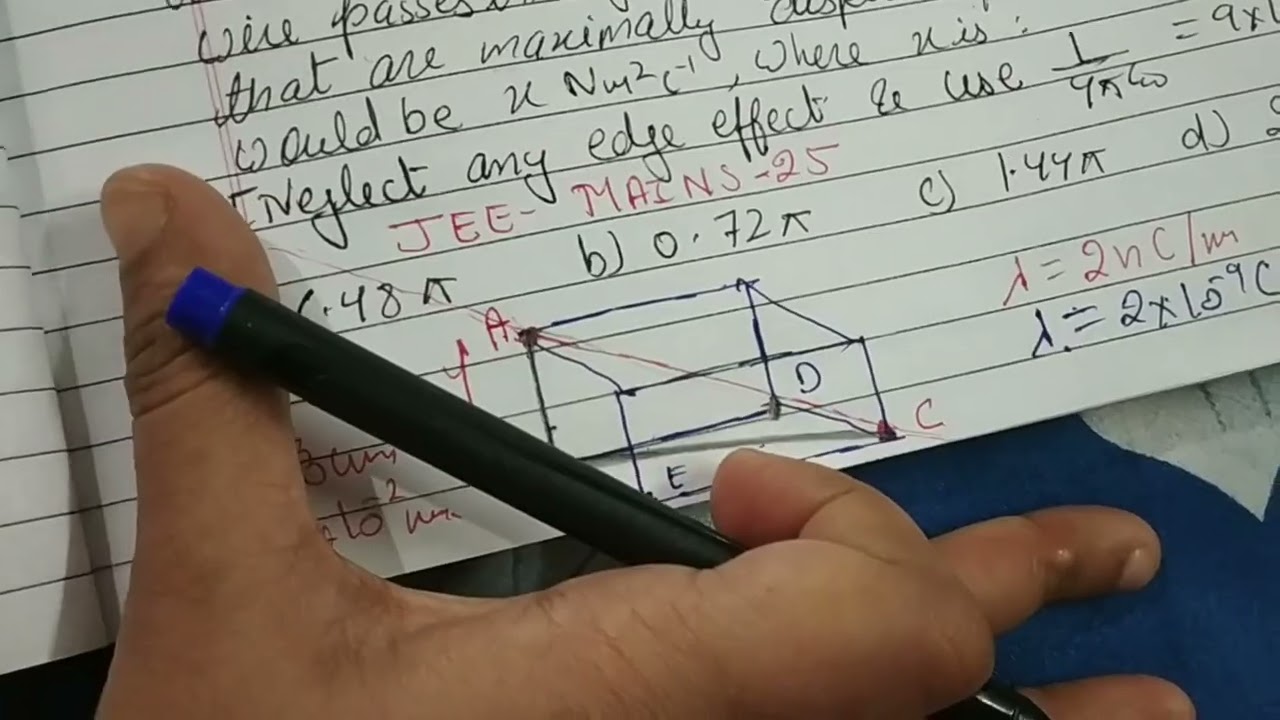 wire passes
that are maximally
would be x Nm²C⁻¹, where x is:
Neglect any edge effect & use 1/4πε₀ = 9×1
JEE-MAINS-25
.48π b) 0.72π c) 1.44π d)
λ = 2nC/m
λ = 2×10⁻⁹C
A
D
C
E
3cm
10⁻² m